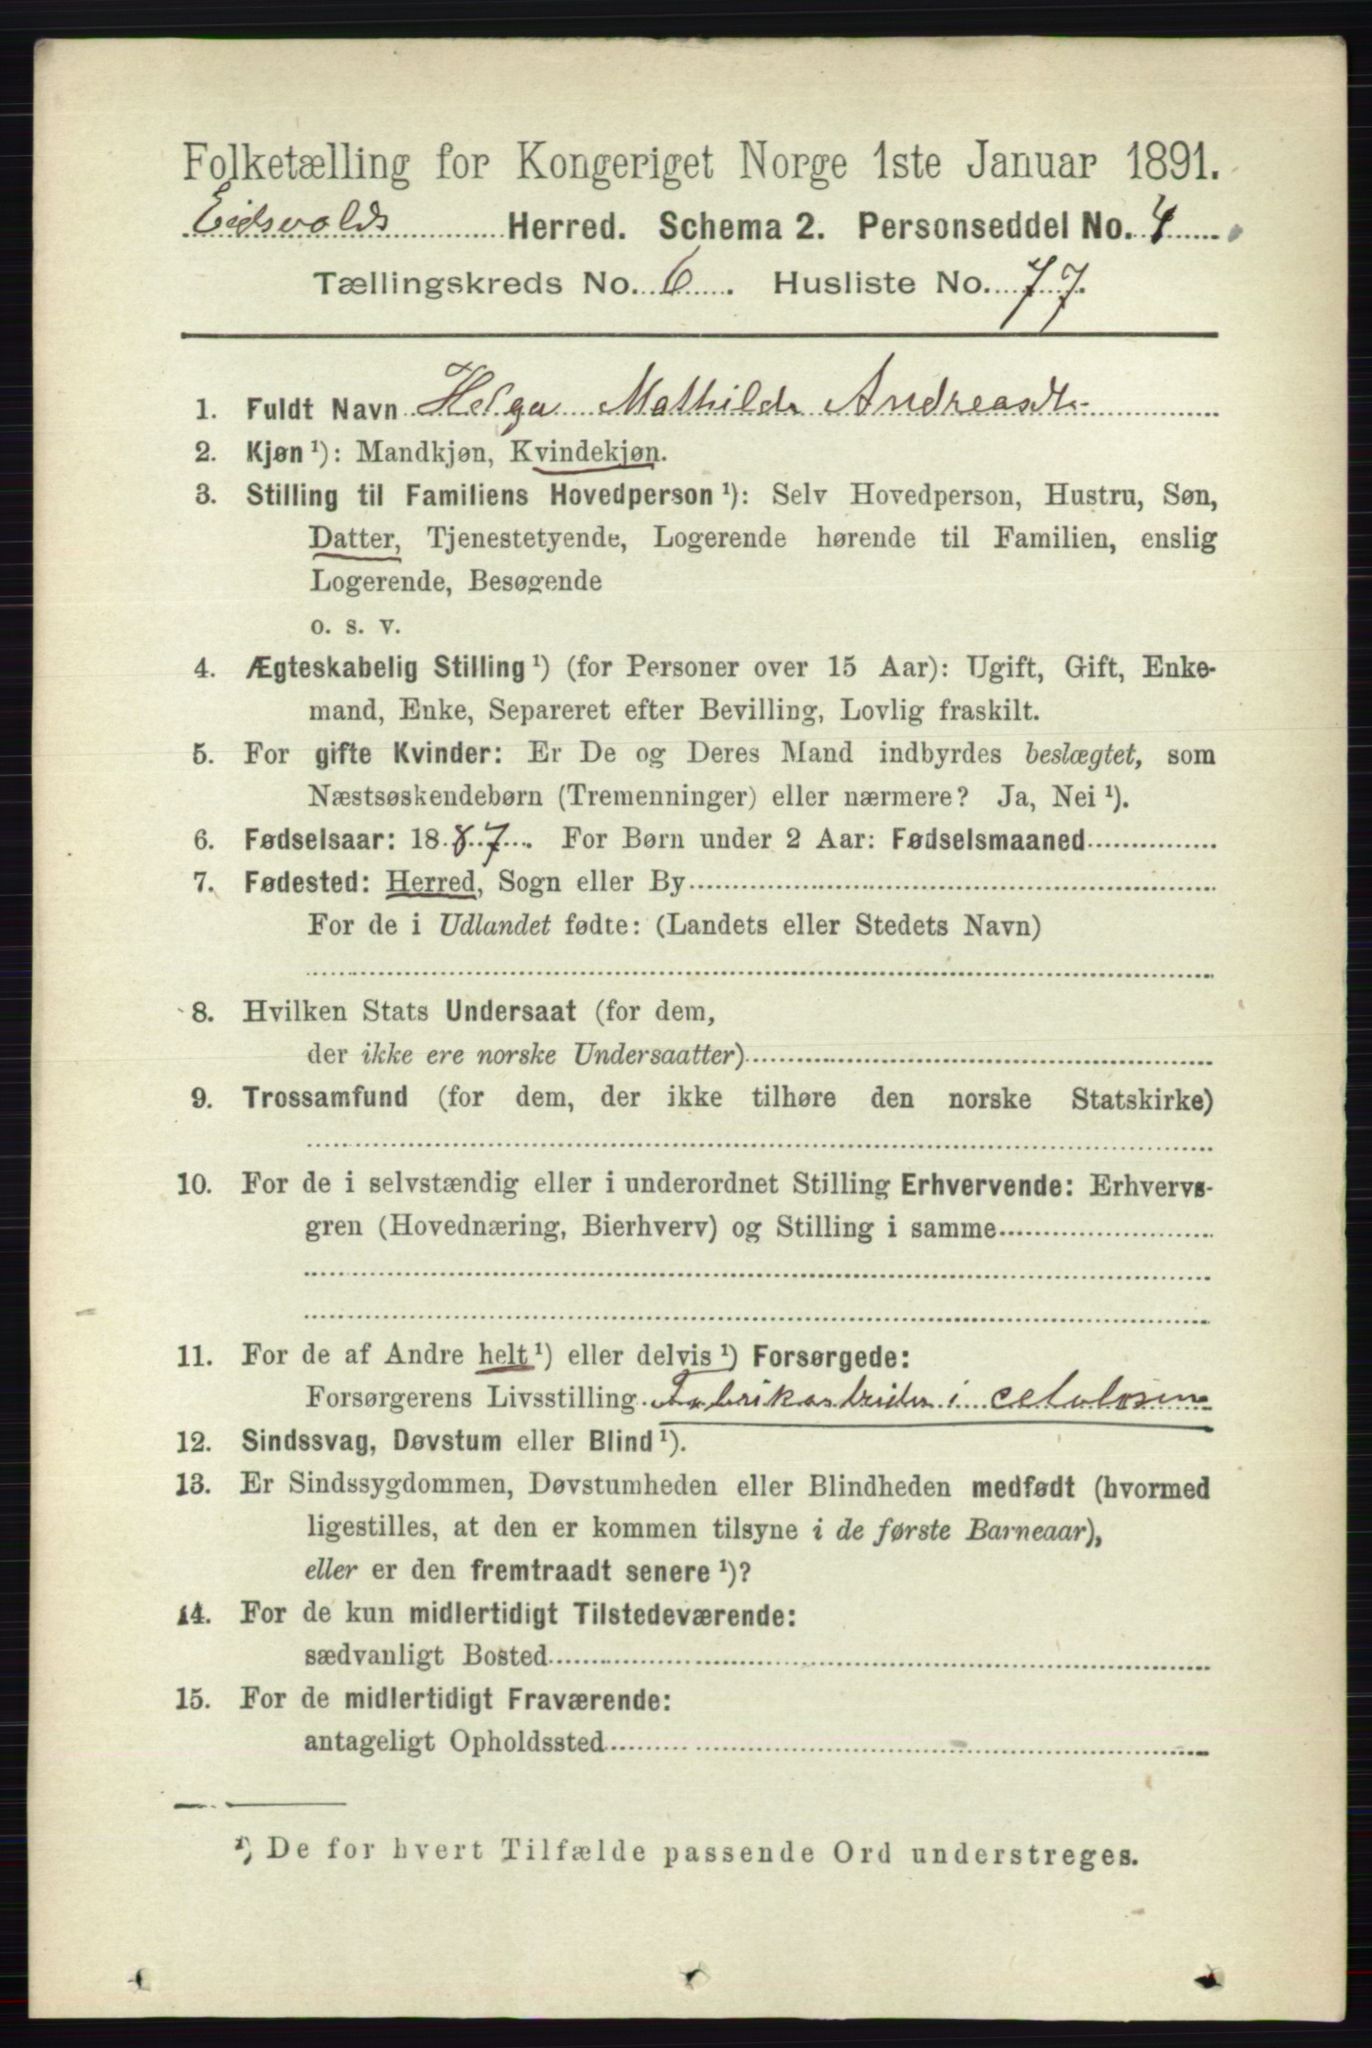 Folketælling for Kongeriget Norge 1ste Januar 1891.
Eidsvolds Herred. Schema 2. Personseddel No. 4
Tællingskreds No. 6. Husliste No. 77.
1. Fuldt Navn Helga Mathilde Andreasdtr
2. Kjøn ¹): Mandkjøn, Kvindekjøn.
3. Stilling til Familiens Hovedperson ¹): Selv Hovedperson, Hustru, Søn,
Datter, Tjenestetyende, Logerende hørende til Familien, enslig
Logerende, Besøgende
o. s. v.
4. Ægteskabelig Stilling ¹) (for Personer over 15 Aar): Ugift, Gift, Enke-
mand, Enke, Separeret efter Bevilling, Lovlig fraskilt.
5. For gifte Kvinder: Er De og Deres Mand indbyrdes beslægtet, som
Næstsøskendebørn (Tremenninger) eller nærmere? Ja, Nei ¹).
6. Fødselsaar: 1887. For Børn under 2 Aar: Fødselsmaaned
7. Fødested: Herred, Sogn eller By
For de i Udlandet fødte: (Landets eller Stedets Navn)
8. Hvilken Stats Undersaat (for dem,
der ikke ere norske Undersaatter)
9. Trossamfund (for dem, der ikke tilhøre den norske Statskirke)
10. For de i selvstændig eller i underordnet Stilling Erhvervende: Erhvervs-
gren (Hovednæring, Bierhverv) og Stilling i samme
11. For de af Andre helt ¹) eller delvis ¹) Forsørgede:
Forsørgerens Livsstilling Fabrikarbeider i celulosen
12. Sindssvag, Døvstum eller Blind ¹).
13. Er Sindssygdommen, Døvstumheden eller Blindheden medfødt (hvormed
ligestilles, at den er kommen tilsyne i de første Barneaar),
eller er den fremtraadt senere ¹)?
14. For de kun midlertidigt Tilstedeværende:
sædvanligt Bosted
15. For de midlertidigt Fraværende:
antageligt Opholdssted
¹) De for hvert Tilfælde passende Ord understreges.